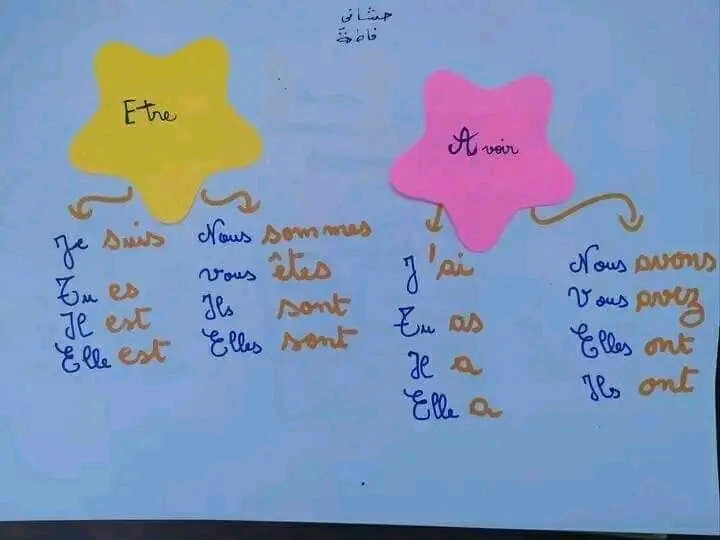 حشاني
فاطمة
Etre
Je suis
Tu es
Il est
Elle est
Nous sommes
vous êtes
Ils sont
Elles sont
Avoir
J'ai
Tu as
Il a
Elle a
Nous avons
Vous avez
Elles ont
Ils ont